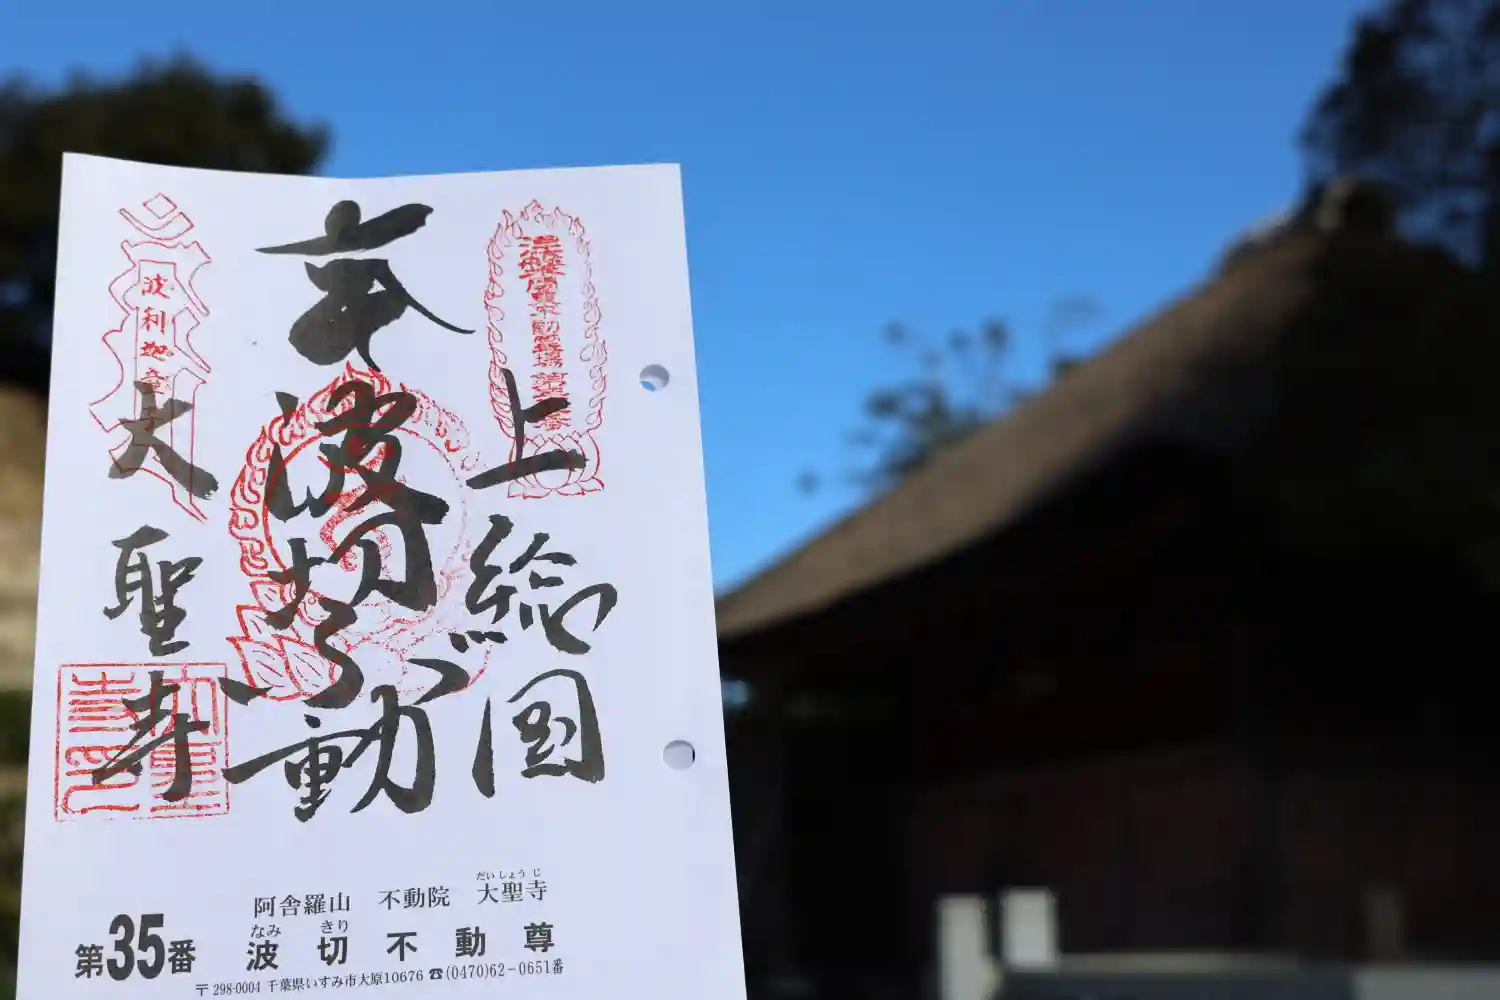 上総国
奉
波切不動
大聖寺
波利迦童子
阿舎羅山 不動院 大聖寺
だいしょうじ
第35番 波切不動尊
なみ きり
〒298-0004 千葉県いすみ市大原10676 ☎(0470)62-0651番